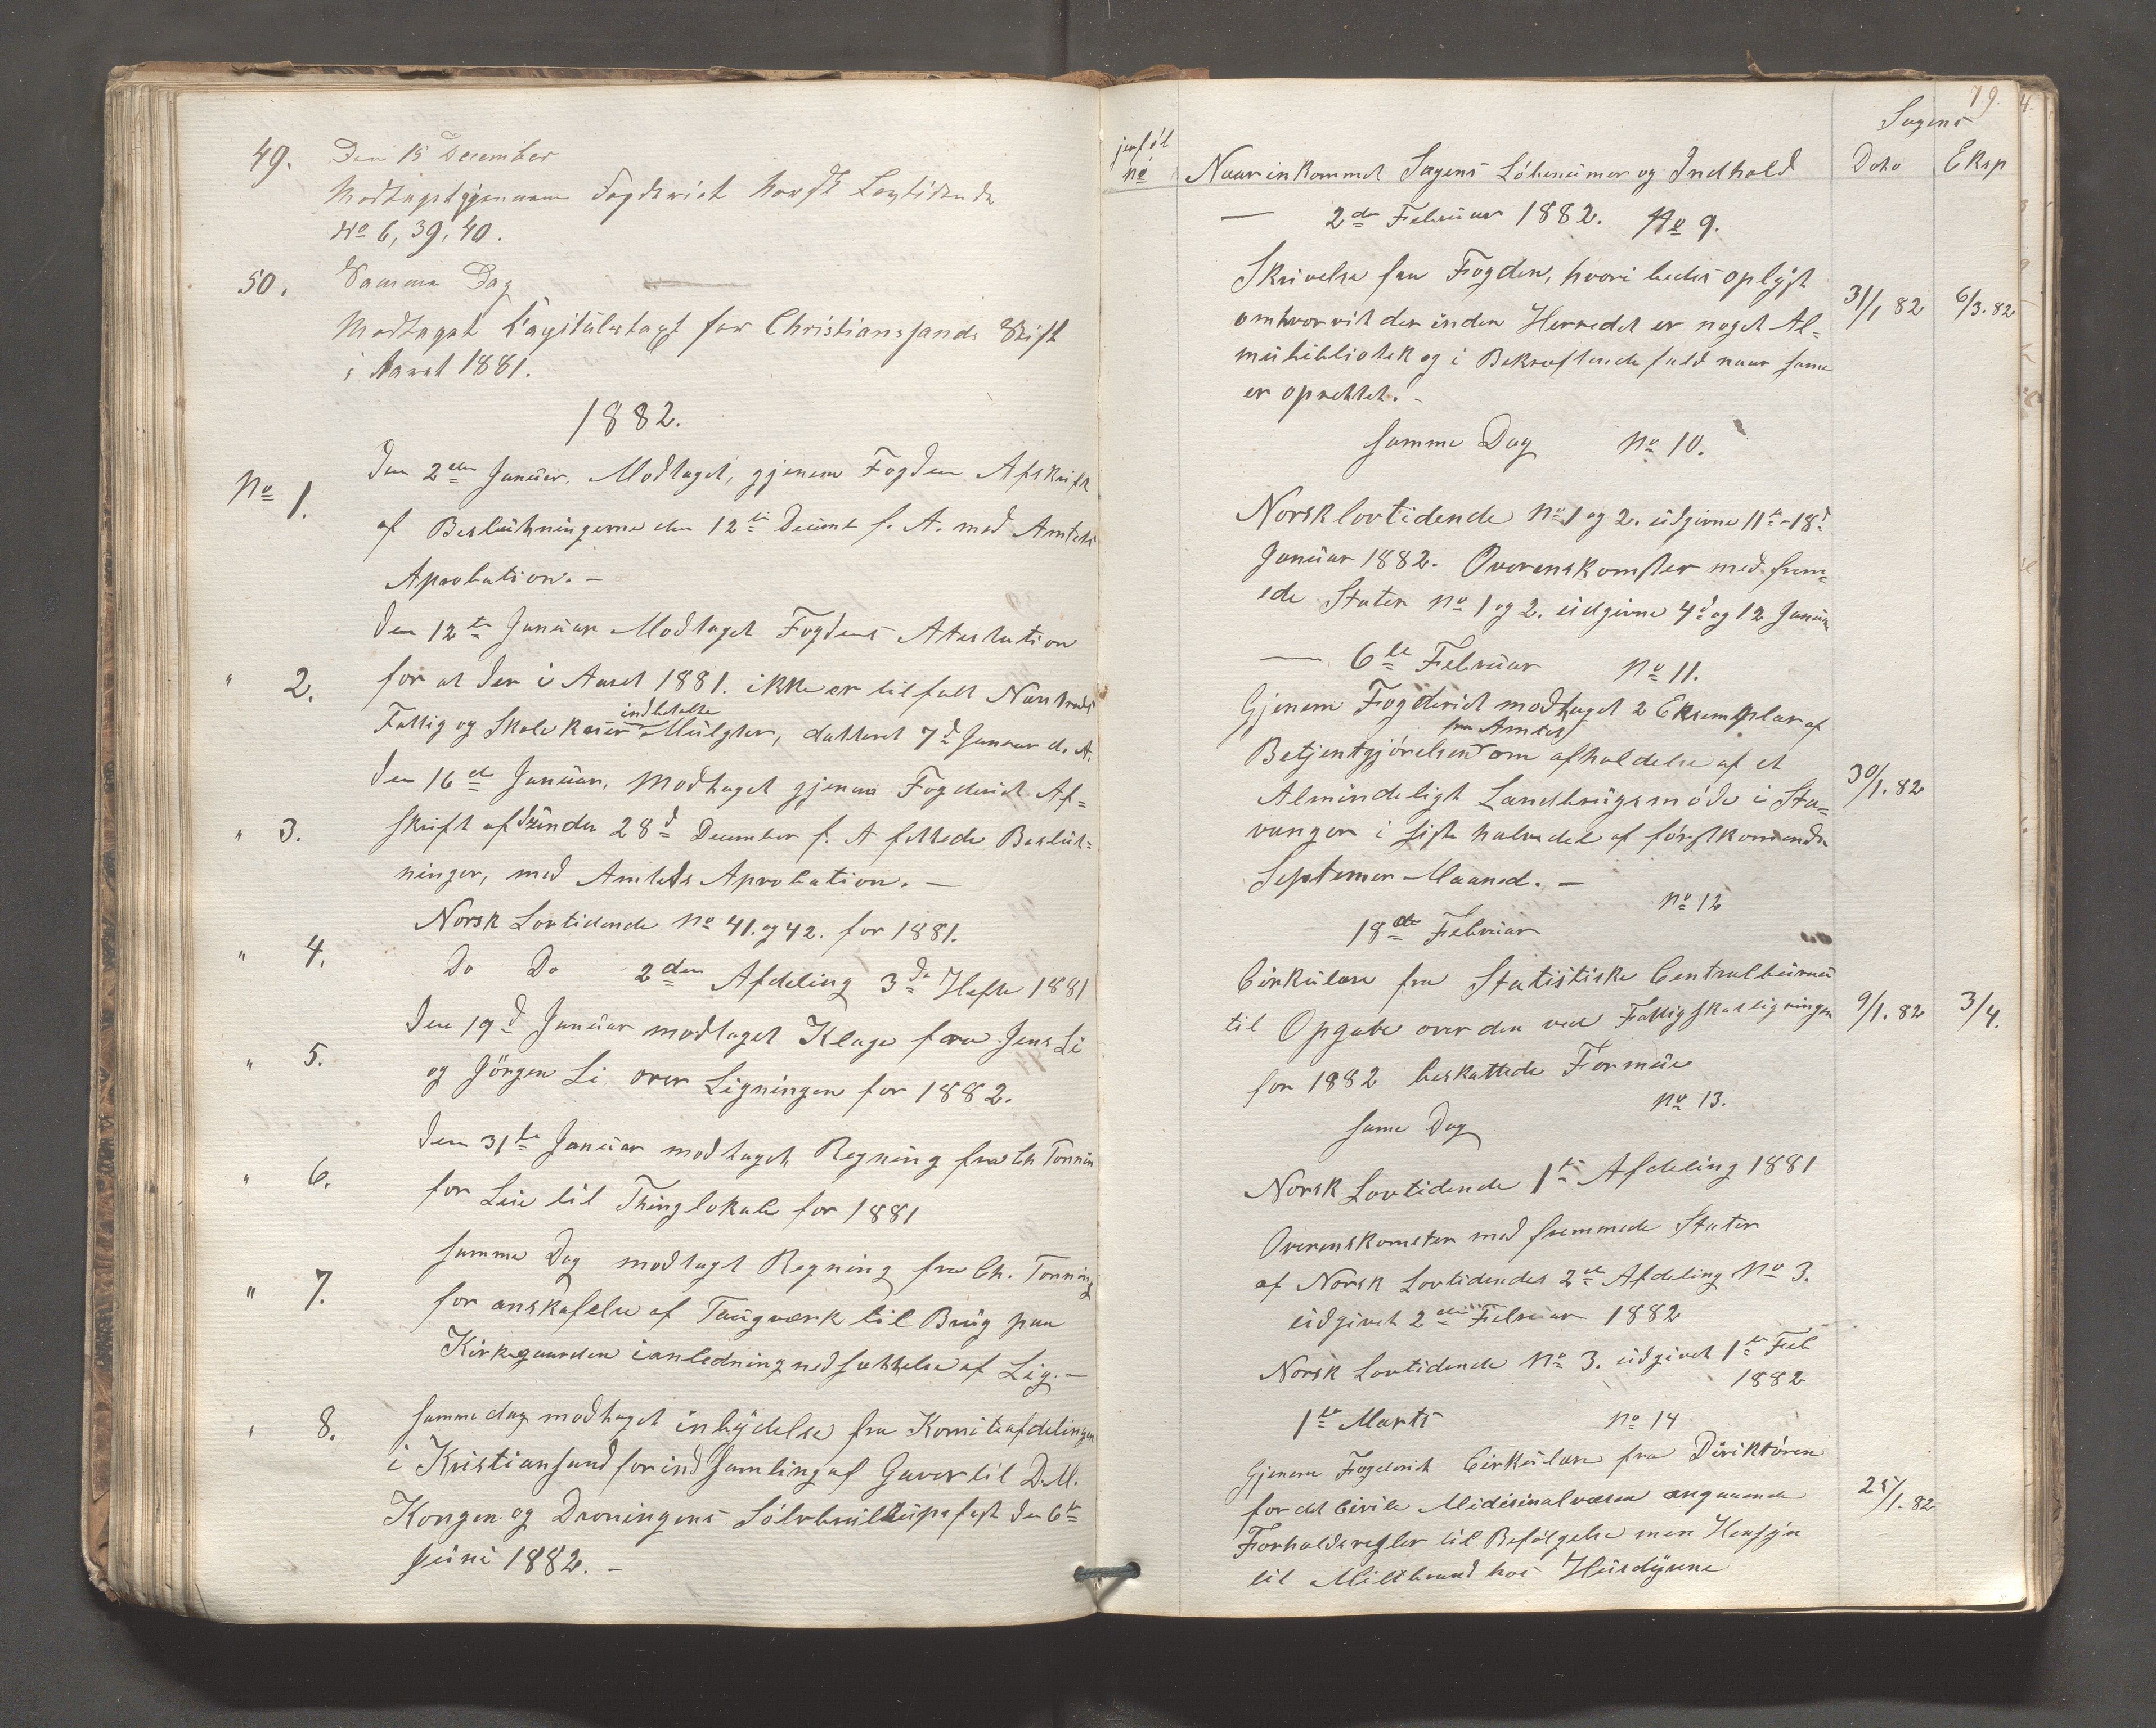 49. Den 15 December
Modtaget gjennem Fogderiet Norsk Lovtidende
No 6, 39, 40.
50. Samme Dag
Modtaget Capitulstagt for Christianssands Stift
i Aaret 1881.
1882.
No 1. Den 2den Januar. Modtaget, gjenem Fogden Afskrift
af Beslutningerne den 12te Decembr f. A. med Amtets
Aprobation. –
Den 12te Januar Modtaget Fogdens Atestation
" 2. for at der i Aaret 1881. ikke er tilfalt Nærstrands
indbetalte
Fattig og Skolekasser Mulgter, datteret 7d Januar d. A.
Den 16de Januar, Modtaget gjenem Fogderiet Af=
" 3. skrift af under 28d December f. A fattede Beslut=
ninger, med Amtets Aprobation. –
Norsk Lovtidende No 41. og 42. for 1881.
" 4. Do Do 2den Afdeling 3de Hefte 1881
Den 19d Januar modtaget Klage fra Jens Li
" 5. og Jörgen Li over Ligningen for 1882.
Den 31te Januar modtaget Regning fra Ch Tonning
" 6. for Leie til Thinglokale for 1881
Samme Dag modtagt Regning fra Ch. Tonning
" 7. for anskafelse af Taugværk til Brug paa
Kirkegaarden i anledning nedsættelse af Lig. –
" 8. Samme dag modtaget inbydelse fra Komiteafdelingen
i Kristiansand for indsamling af Gaver til D.M.
Kongen og Droningens Sölvbrullupsfest den 6te
Juni 1882. –
79.
jevför
no
Naar inkommet Sagens Löbenumer og Indhold
Sagens
Dato Eksp
— 2den Februar 1882. No 9.
Skrivelse fra Fogden, hvori bedes oplyst
omhvorvit der inden Herredet er noget Al=
31/1 82 6/3. 82
mubibliotek og i Bekræftende fald naar same
er oprettet. –
samme Dag No 10.
Norsk lovtidende No 1 og 2. udgivne 11te – 18d
Januar 1882. Overenskomster med frem=
ede Stater No 1 og 2. udgivne 4d og 12 Januar
— 6te Februar No 11.
Gjenem Fogderiet modtaget 2 Eksemplar af
fra Amtet
Betjentgjörelsen om afholdelse af et
Almindeligt Landbrugsmöde i Sta=
30/1. 82
vanger i siste halvedel af förstkomende
Septemer Maaned. –
No 12
18de Februar
Cirkulære fra Statistiske Centralbureau
til Opgave over den ved Fattigskatligningen
9/1. 82 3/4.
for 1882 beskattede Formue
No 13.
same Dag
Norsk Lovtidende 1te Afdeling 1881
Overenskomster med fremmede Stater
af Norsk Lovtidendes 2de Afdeling No 3.
udgivet 2den Februar 1882
Norsk Lovtidende No 3. udgivet 1te Feb
1882
1te Marts No 14
Gjenem Fogderiet Cirkulære fra Direktören
for det Civile Midisinalvæsen angaaende
25/1. 82
Forholdsregler til Befölgelse men Hensyn
til Miltbrand hos Husdyrene